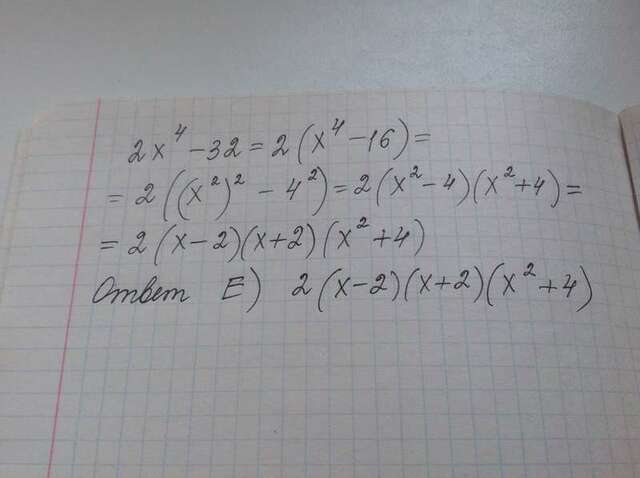 2x⁴ - 32 = 2(x⁴ - 16) =
= 2((x²)² - 4²) = 2(x² - 4)(x² + 4) =
= 2(x - 2)(x + 2)(x² + 4)
Ответ E) 2(x - 2)(x + 2)(x² + 4)